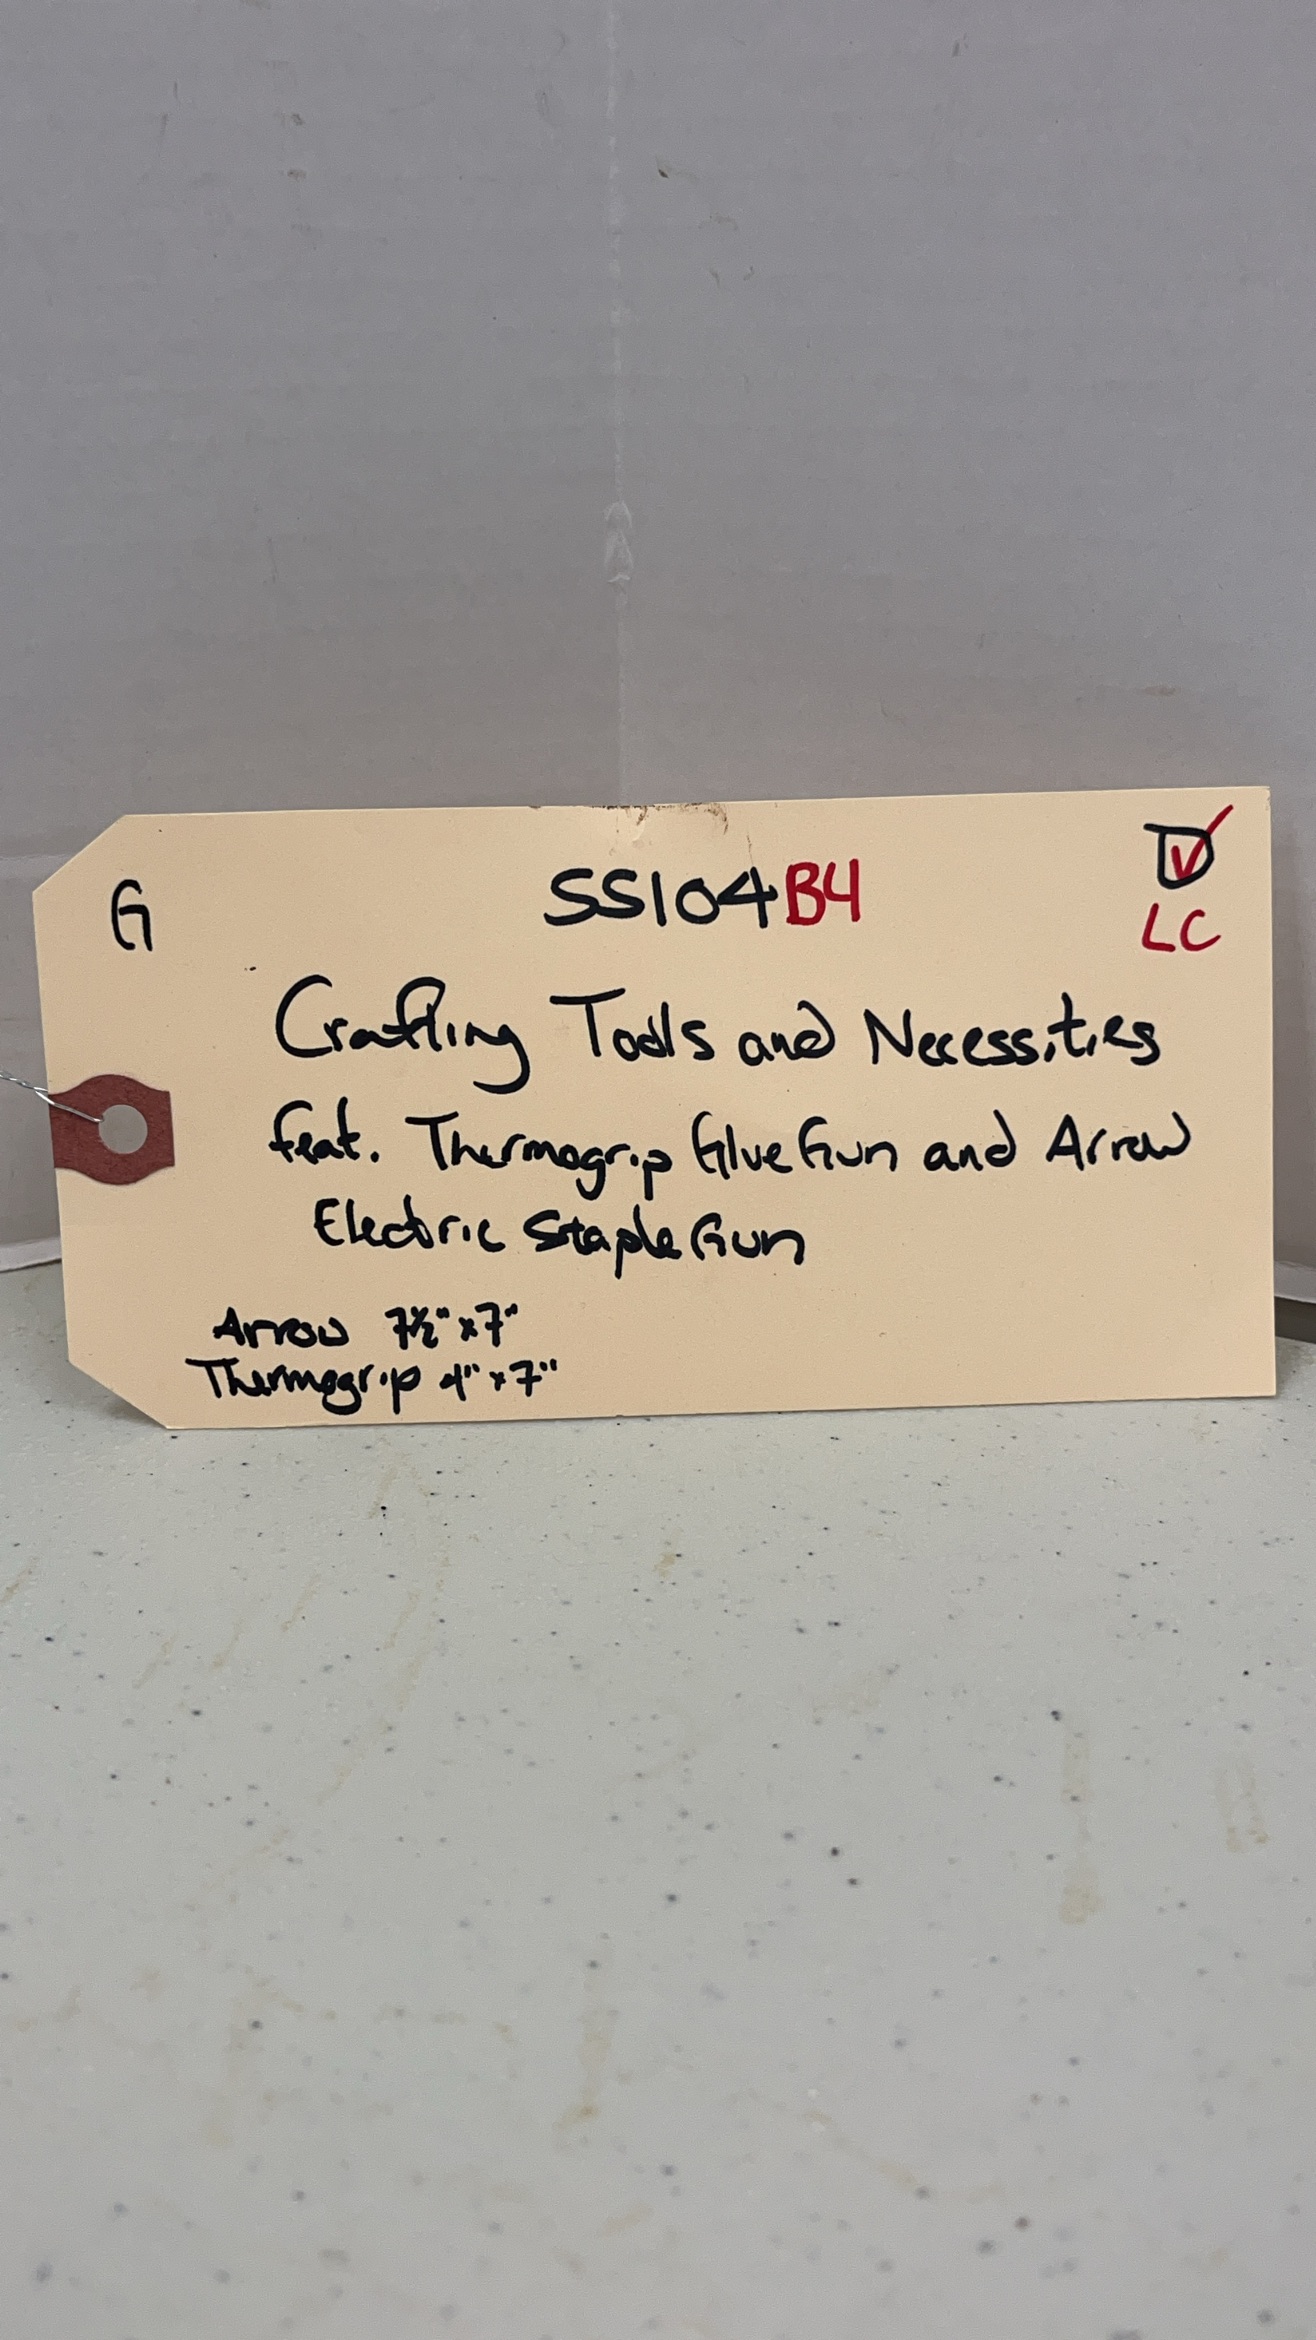 G
SS104B4
LC
Crafting Tools and Necessities
feat. Thermogrip Glue Gun and Arrow
Electric Staple Gun
Arrow 7½" x 7"
Thermogrip 4" x 7"